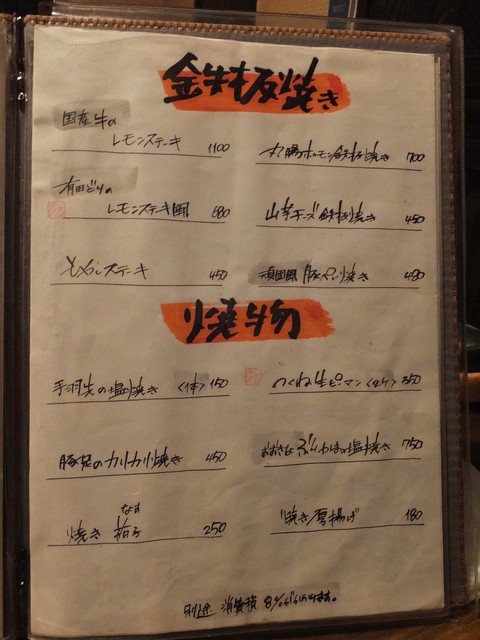 鉄板焼き
国産牛の
レモンステーキ 1100
有田どりの
レモンステーキ風 680
もやしステーキ 450
丸腸ホルモン鉄板焼き 700
山芋チーズ鉄板焼き 450
豚バラ焼き 480
焼物
手羽先の塩焼き 〈1本〉 150
豚足のカリカリ焼き 450
なす
焼き茄子 250
つくね生ピーマン 〈2ケ〉 350
おおきな ぶりかまの塩焼き 750
焼き厚揚げ 180
別途 消費税 8%がかかります。